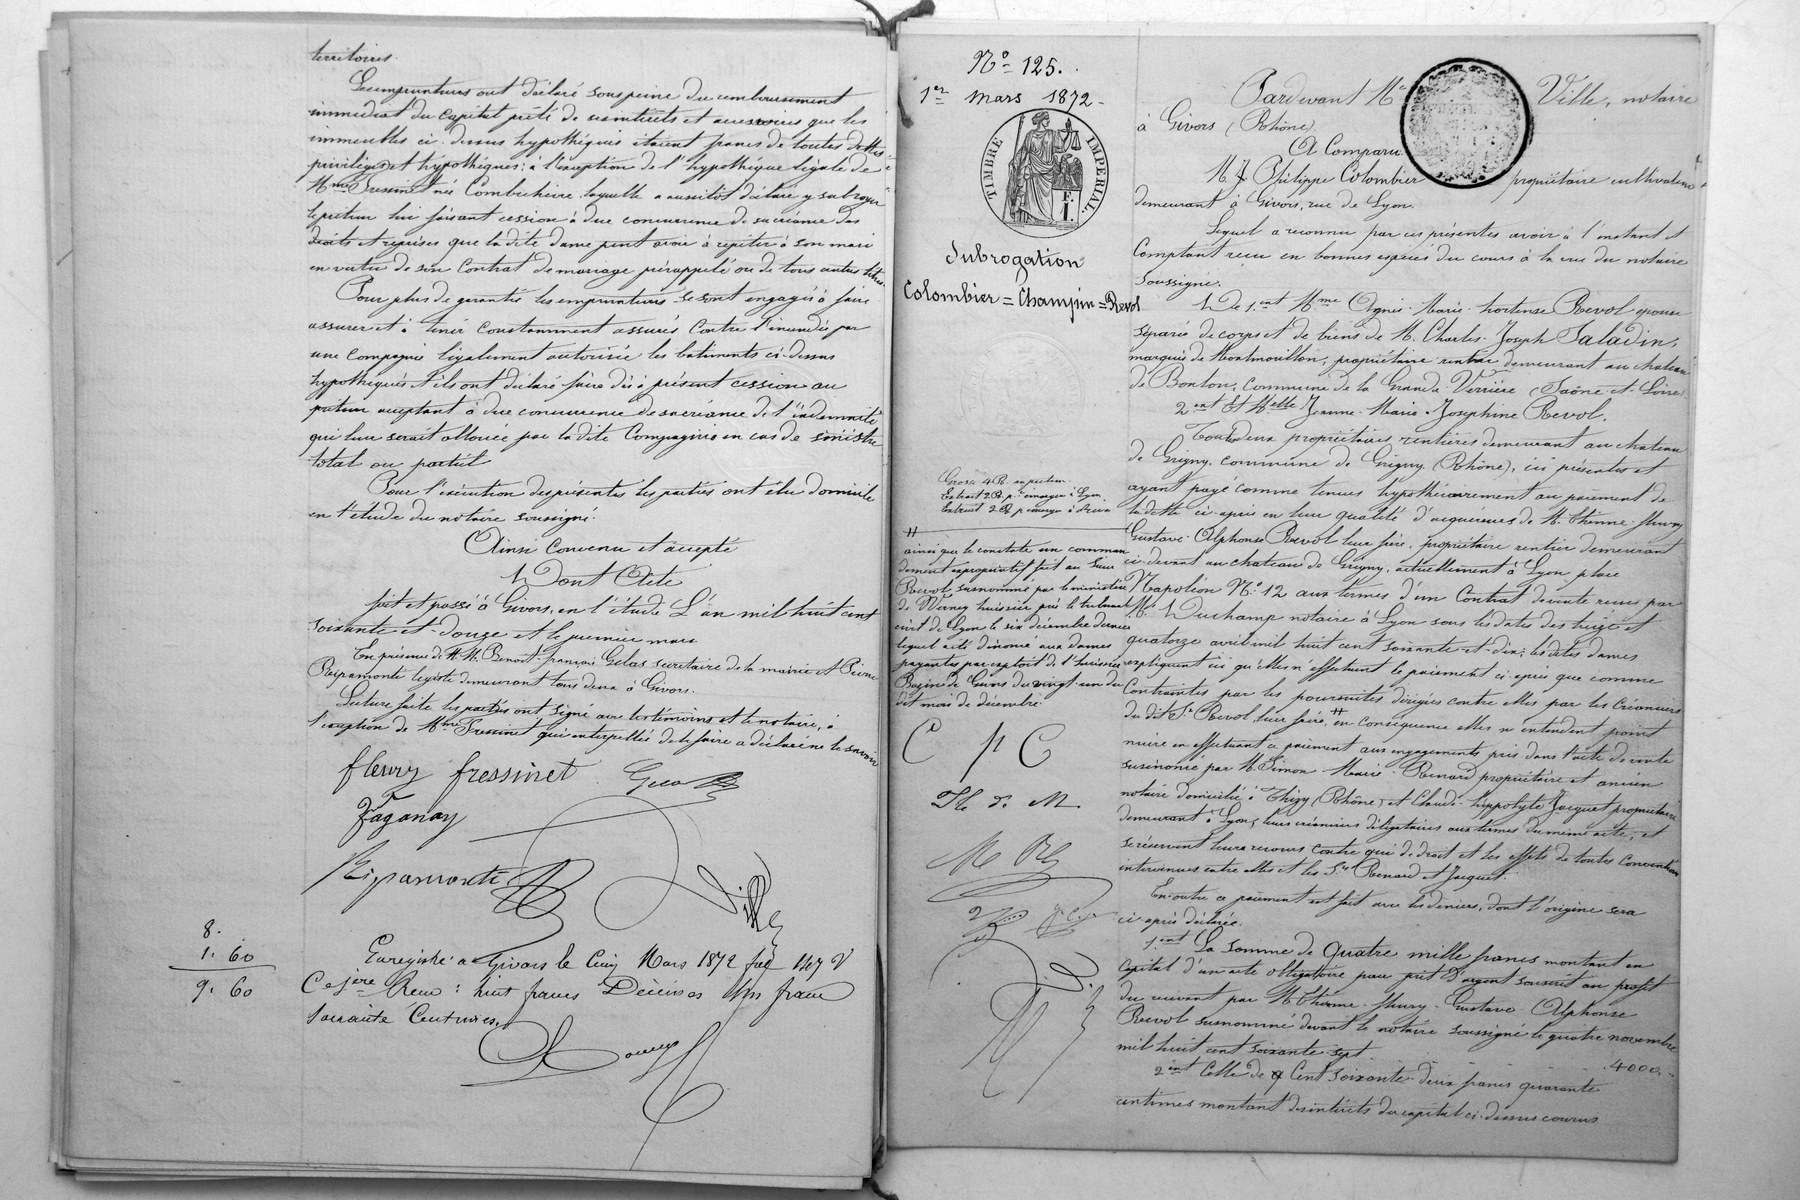 territoires.
Les emprunteurs ont déclaré sous peine du remboursement
immédiat du capital prêté de ses intérêts et accessoires que les
immeubles ci-dessus hypothéqués étaient francs de toutes dettes
privilèges et hypothèques; à l'exception de l'hypothèque légale de
Mme Fressinet née Combichaire, laquelle a aussitôt déclaré y subroger
le prêteur lui faisant cession à due concurrence de sa créance des
droits et reprises que la dite dame peut avoir à répéter à son mari
en vertu de son contrat de mariage prérappelé ou de tous autres titres.
Pour plus de garantie les emprunteurs se sont engagés à faire
assurer et à tenir constamment assurés contre l'incendie par
une compagnie légalement autorisée les bâtiments ci-dessus
hypothéqués et ils ont déclaré faire dès à présent cession au
prêteur acceptant à due concurrence de sa créance de l'indemnité
qui leur serait allouée par la dite Compagnie en cas de sinistre
total ou partiel
Pour l'exécution des présentes les parties ont élu domicile
en l'étude du notaire soussigné.
Ainsi convenu et accepté
Dont Acte
fait et passé à Givors, en l'étude L'an mil huit cent
soixante-et-douze et le premier mars
En présence de M.M. Benoit-françois Gelas secrétaire de la mairie et Pierre
Ripamonte légiste demeurant tous deux à Givors.
Lecture faite les parties ont signé avec les témoins et le notaire, à
l'exception de Mme Fressinet qui interpellée de le faire a déclaré ne le savoir
fleury fressinet Gelas
Zaganay
Ripamonti
Ville
8.
1. 60
9. 60
Enregistré à Givors le Cinq Mars 1872 fol 147 V
Ce 1ère Reçu: huit francs Décimes un franc
soixante Centimes.
No 125.
1er mars 1872-
TIMBRE IMPERIAL.
E.I.
Subrogation
Colombier = Champin = Revol
Grosse 4 R.
Extrait 2 R. p. émarger à Lyon
Extrait 2 R. p. émarger à
ainsi que le constate un comman
dement expropriatif fait au Sieur
Revol susnommé par le ministère
de Verney huissier près le tribunal
civil de Lyon le six décembre dernier
lequel a été dénoncé aux dames
payantes par exploit de l'huissier
Bazin de Givors du vingt-un du
dit mois de décembre
C p C
H. r. M.
M R
Pardevant Me Ville, notaire
à Givors (Rhône)
A Comparu
M. Philippe Colombier propriétaire cultivateur
demeurant à Givors, rue de Lyon.
Lequel a reconnu par ces présentes avoir à l'instant et
Comptant reçu en bonnes espèces du cours à la vue du notaire
soussigné.
De 1.ent Mme Agnès-Marie-hortense Revol épouse
séparée de corps et de biens de M. Charles-Joseph Saladin,
marquis de Montmorillon, propriétaire-rentier demeurant au château
de Bonton, commune de la Grande-Verrière (Saône-et-Loire)
2.ent Et Melle Jeanne-Marie-Josephine Revol.
Toutes deux propriétaires rentières demeurant au château
de Grigny, commune de Grigny (Rhône), ici présentes et
ayant payé comme tenues hypothécairement au paiement de
la dette ci-après en leur qualité d'acquéreurs de M. Etienne-fleury
Gustave-Alphonse Revol leur frère, propriétaire rentier demeurant
ci-devant au château de Grigny, actuellement à Lyon, place
Napoléon No 12 aux termes d'un Contrat de vente reçu par
Me Duchamp notaire à Lyon sous les dates des treize et
quatorze avril mil huit cent soixante-et-dix; les dites dames
expliquent ici qu'elles n'effectuent le paiement ci-après que comme
Contraintes par les poursuites dirigées contre elles par les Créanciers
du dit Sr Revol leur frère, # en conséquence elles n'entendent point
nuire en effectuant ce paiement aux engagements pris dans l'acte de vente
susénoncé par M. Simon-Marie-Renard propriétaire et ancien
notaire domicilié à Thizy (Rhône) et Claude-hippolyte Jacquet propriétaire
demeurant à Lyon, leurs créanciers délégataires aux termes du même acte, et
se réservent leurs recours contre qui de droit et les effets de toutes Conventions
intervenues entre elles et les Srs Renard et Jacquet.
En outre ce paiement est fait avec les deniers, dont l'origine sera
ci-après déclarée.
1.ent La somme de Quatre mille francs montant en
capital d'un acte obligatoire pour prêt d'argent souscrit au profit
du recevant par M. Etienne-fleury-Gustave-Alphonse
Revol susnommé devant le notaire soussigné le quatre novembre
mil huit cent soixante-sept. 4000.
2.ent Celle de Cent soixante-deux francs quarante
centimes montant des intérêts du capital ci-dessus courus